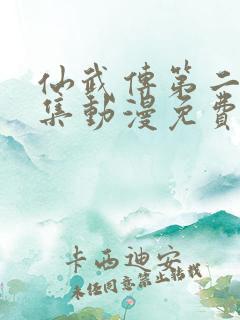 仙武傳第二
集動漫免費
卡西迪安
未經同意禁止轉載